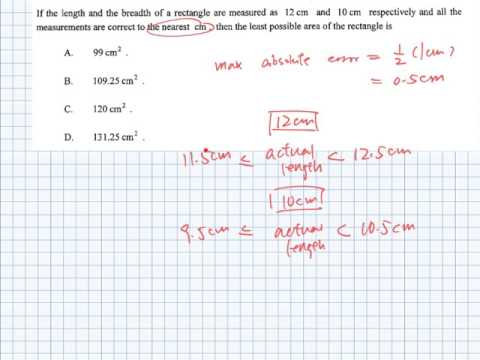 If the length and the breadth of a rectangle are measured as 12 cm and 10 cm respectively and all the
measurements are correct to the nearest cm , then the least possible area of the rectangle is
A. 99 cm² .
B. 109.25 cm² .
C. 120 cm² .
D. 131.25 cm² .
max absolute error = 1/2 (1cm)
= 0.5cm
12cm
11.5cm ≤ actual length < 12.5cm
10cm
9.5cm ≤ actual length < 10.5cm